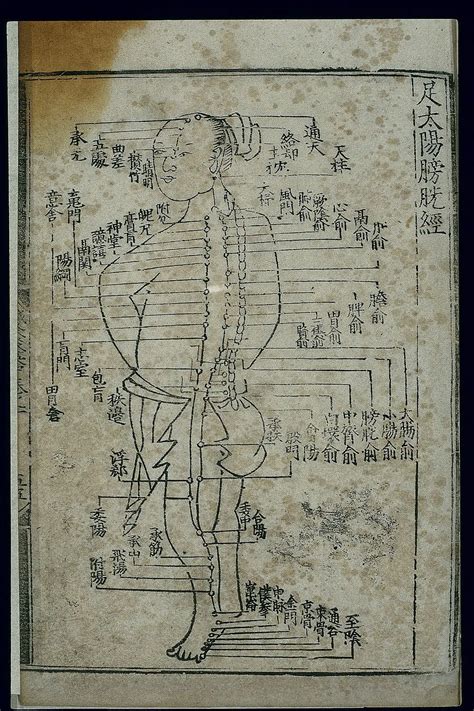 足太陽膀胱經
通天
絡却
玉枕
天柱
五處
曲差
攢竹
睛明
風門
心俞
膈俞
附分
魄户
膏肓
神堂
譩譆
膈關
魂門
意舍
陽綱
肝俞
膽俞
脾俞
胃俞
三焦俞
腎俞
肓門
志室
胞肓
秩邊
胃倉
大腸俞
小腸俞
膀胱俞
中膂俞
白環俞
會陽
承扶
殷門
浮郄
委陽
委中
合陽
承筋
承山
飛陽
附陽
崑崙
僕參
申脉
金門
京骨
束骨
通谷
至陰